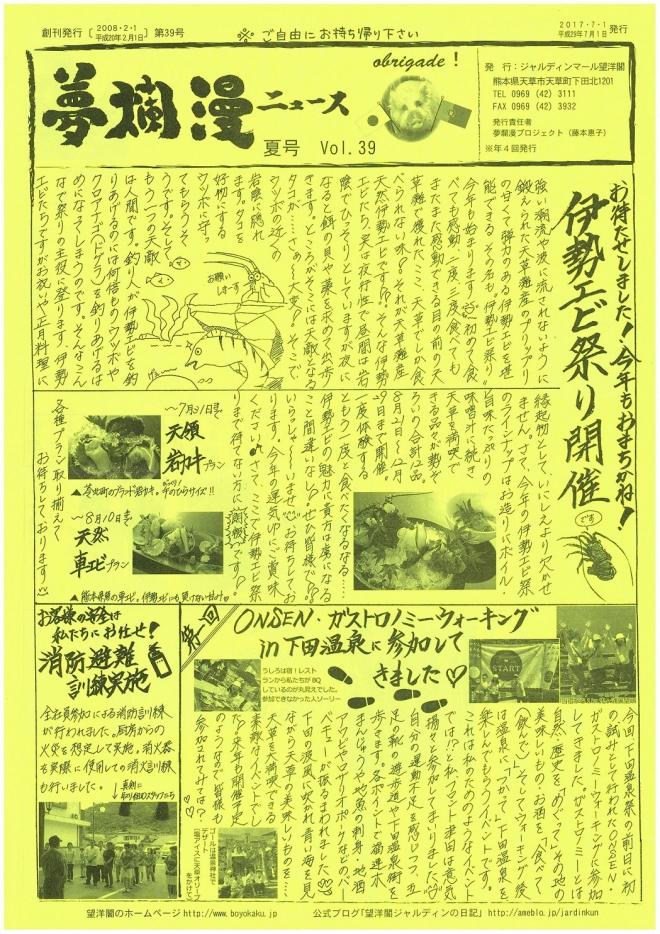 創刊発行〔2008・2・1 平成20年2月1日〕第39号
※ご自由にお持ち帰り下さい
2017・7・1
平成29年7月1日 発行
夢爛漫ニュース
obrigade!
夏号 Vol.39
発 行:ジャルディンマール望洋閣
熊本県天草市天草町下田北1201
TEL 0969 (42) 3111
FAX 0969 (42) 3932
発行責任者
夢爛漫プロジェクト(藤本恵子)
※年4回発行
お待たせしました!今年もおまちかね!
伊勢エビ祭り開催
です
強い潮流や波に流されないように
鍛えられた天草灘産のプリップリ
の甘くて弾力のある伊勢エビを堪
能できる、その名も"伊勢エビ祭り"
今年も始まります
初めて食
べても感動、二度、三度食べても
またまた感動できる目の前の天
草灘で獲れたここ、天草でしか食
べられない味。それが天草灘産
天然伊勢エビです!?そんな伊勢
エビたち、実は夜行性で昼間は岩
陰でひっそりとしていますが夜に
なると餌の貝や藻を求めて出歩
きます。ところがそこには天敵となる
タコが…さぁ~大変?。そこで
ウツボの近くの
岩陰に隠れ
ます。タコを
好物にする
ウツボに守っ
てもらうそ
うです。そして
もう一つの天敵
は人間です。釣り人が伊勢エビを釣
りあげるのには何倍ものウツボや
クロアナゴ(ドグラ)を釣りあげるは
めになってしまうのです。そんなこん
なで祭りの主役に登ります、伊勢
エビたちですがお祝いや正月料理に
お願いしまーす
縁起物として、いにしえより欠かせ
ません。さて、今年の伊勢エビ祭
のラインナップはお造りにボイル・
旨味たっぷりの
味噌汁に続き
天草を満喫で
きる品々が勢ぞ
ろいの合計12品。
8月21日~12月
29日まで開催。
一度体験する
ともう一度と食べたくなるなる…
伊勢エビの魅力に貴方は虜になる
こと間違いなし?ぜひ皆様で!?
いらっしゃ~いませ
お待ちしてお
ります。今年の運気UPにご賞味
ください♪さて、ここで伊勢エビ祭
りまで待てない方に朗報です!
~7月31日まで
天領
岩ガキプラン
▲苓北町のブランド岩ガキ。手のひらサイズ!!
~8月10日まで
天然
車エビプラン
▲熊本県産の車エビ。伊勢エビにも負けない甘み♡
各種プラン取り揃えて
お待ちしております
お客様の安全は
私たちにお任せ!
消防避難
訓練実施
全社員参加による消防訓練
が行われました。厨房からの
火災を想定して実施。消火器
を実際に使用しての消火訓練
も行いました。
真剣に
取り組むスタッフたち
第一回
ONSEN・ガストロノミーウォーキング
in下田温泉に参加して
きました♡
START
うしろは宿!レスト
ランから私たちがBQ
しているのが丸見えでした。
参加できなかった人ソーリー
今回、下田温泉祭の前日に初
の試みとして行われたONSEN・
ガストロノミーウォーキングに参加
してきました。ガストロノミーとは
自然、歴史を"めぐって"その地の
美味しいもの・お酒を、"食べて"
(飲んで)、そしてウォーキング後
は温泉に、"つかって"下田温泉を
楽しんでもらうイベントです。
これは私のためのようなイベント
では!?と私、フロント津田は意気
揚々と参加してまいりました
自分の運動不足を感じつつ、五
足の靴の遊歩道や下田温泉街を
歩きます。各ポイントで福連木
まんじゅうや地魚の刺身・地酒
アワビやサザリオポークなどのバー
ベキューが振るまわれました
下田の波風に吹かれ、青い海を見
ながら天草の美味しいものを…
天草を満喫できる
素敵なイベントでし
た?。来年の開催予定
のようなので皆様も
参加されてみては?
ゴールは温泉神社で
デザート
(塩アイスに天草オリーブ
をかけて)
望洋閣のホームページ http://www.boyokaku.jp
公式ブログ「望洋閣ジャルディンの日記」http://ameblo.jp/jardinkun